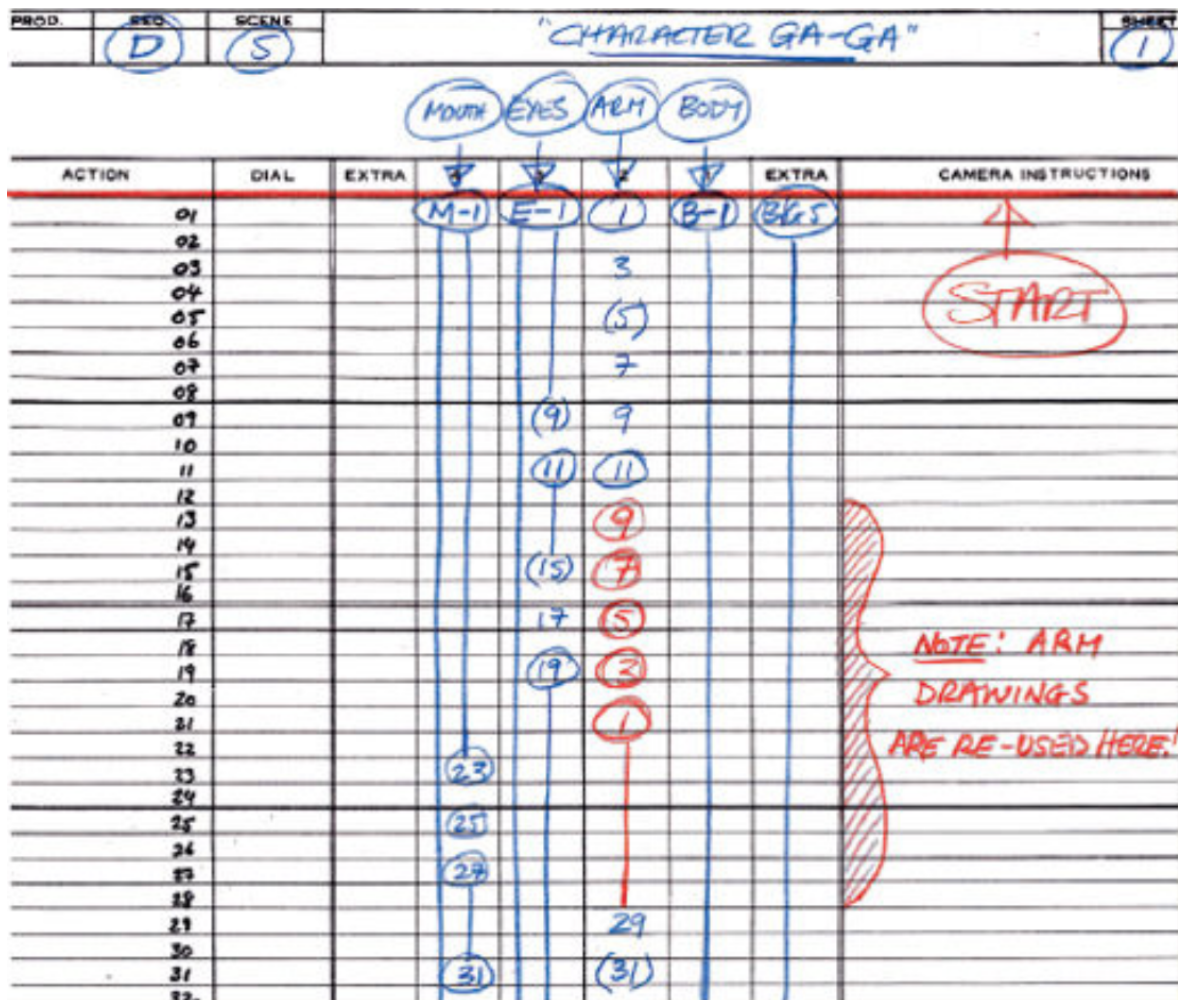 PROD. SEQ. SCENE "CHARACTER GA-GA" SHEET
D 5 1
MOUTH EYES ARM BODY
ACTION DIAL EXTRA EXTRA CAMERA INSTRUCTIONS
01 M-1 E-1 1 B-1 BG5
02
03 3
04 START
05 (5)
06
07 7
08
09 (9) 9
10
11 11 11
12
13 9
14
15 (15) 7
16
17 17 5
18 NOTE: ARM
19 19 3
20 DRAWINGS
21 1
22 ARE RE-USED HERE!
23 23
24
25 25
26
27 27
28
29 29
30
31 31 (31)
32